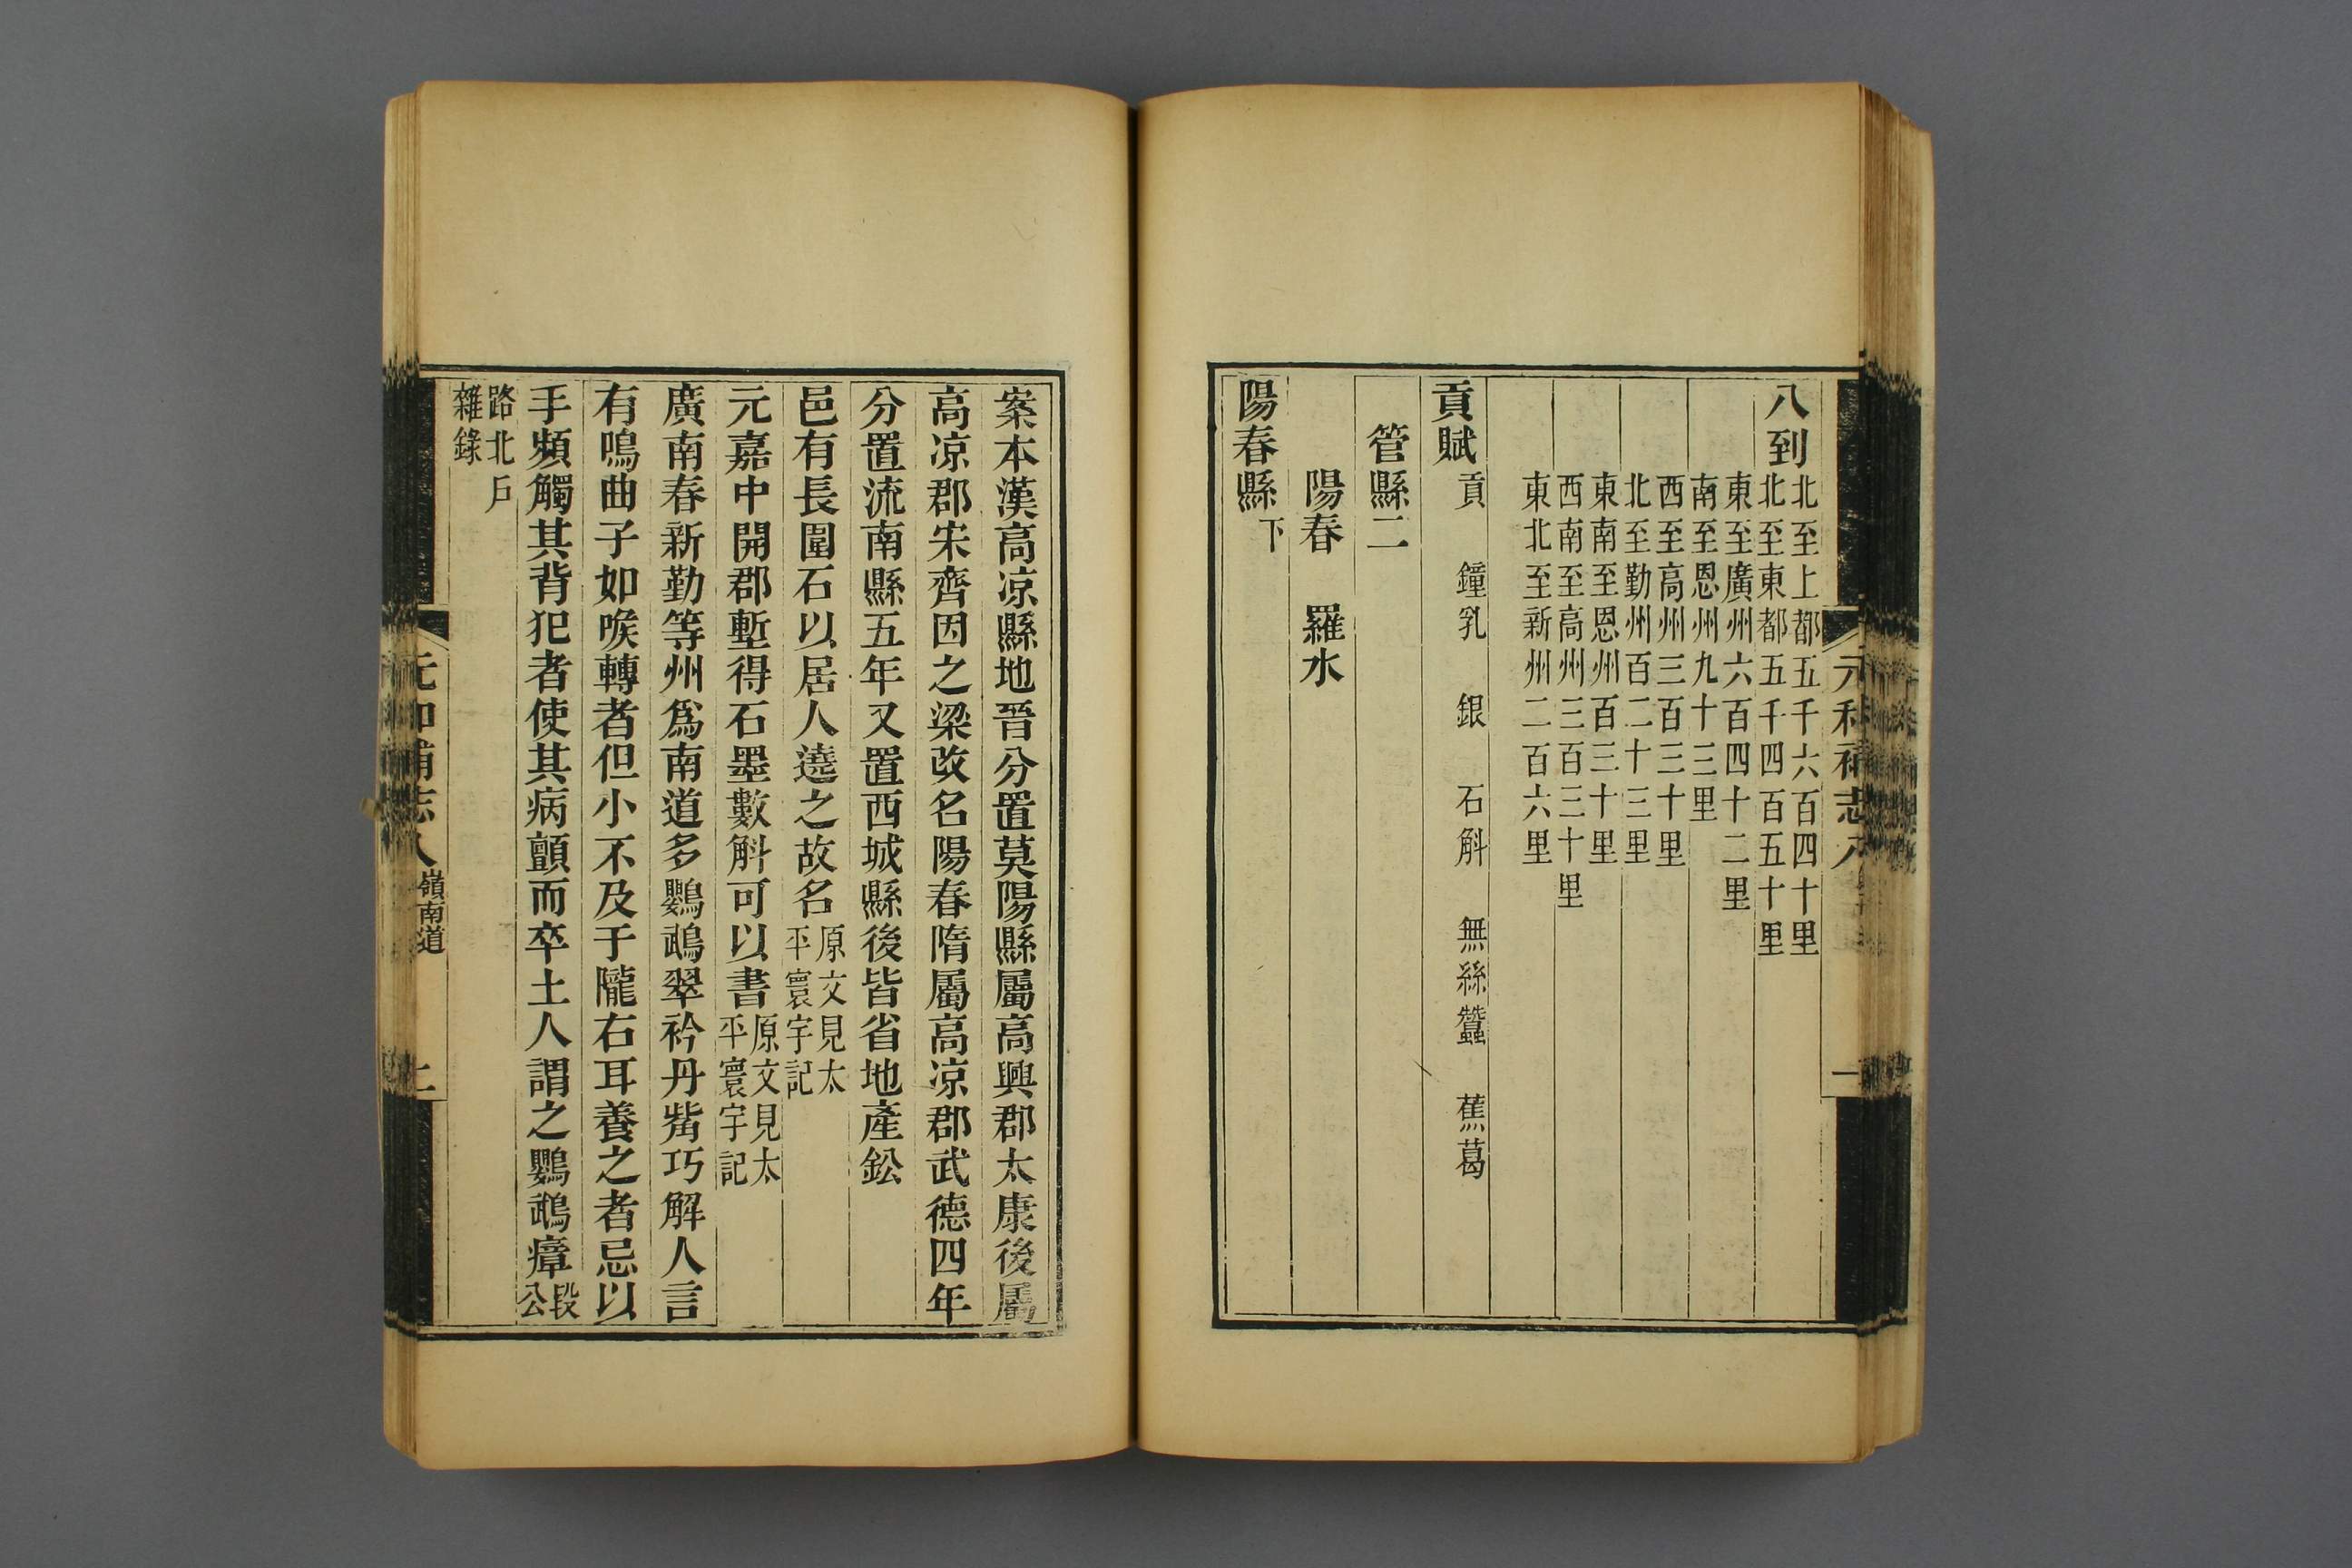 八到北至上都五千六百四十里
北至東都五千四百五十里
東至廣州六百四十二里
南至恩州九十三里
西至高州三百三十里
北至勤州百二十三里
東南至恩州百三十里
西南至高州三百三十里
東北至新州二百六里
貢賦貢 鐘乳 銀 石斛 無絲蠶 蕉葛
管縣二
陽春 羅水
陽春縣下
案本漢高凉縣地晉分置莫陽縣屬高興郡太康後屬
高凉郡宋齊因之梁改名陽春隋屬高凉郡武德四年
分置流南縣五年又置西城縣後皆省地產鈆
邑有長圍石以居人遶之故名原文見太平寰宇記
元嘉中開郡塹得石墨數斛可以書原文見太平寰宇記
廣南春新勤等州爲南道多鸚鵡翠衿丹觜巧解人言
有鳴曲子如喉轉者但小不及于隴右耳養之者忌以
手頻觸其背犯者使其病顫而卒土人謂之鸚鵡瘴段公
路北戶
雜錄
嶺南道